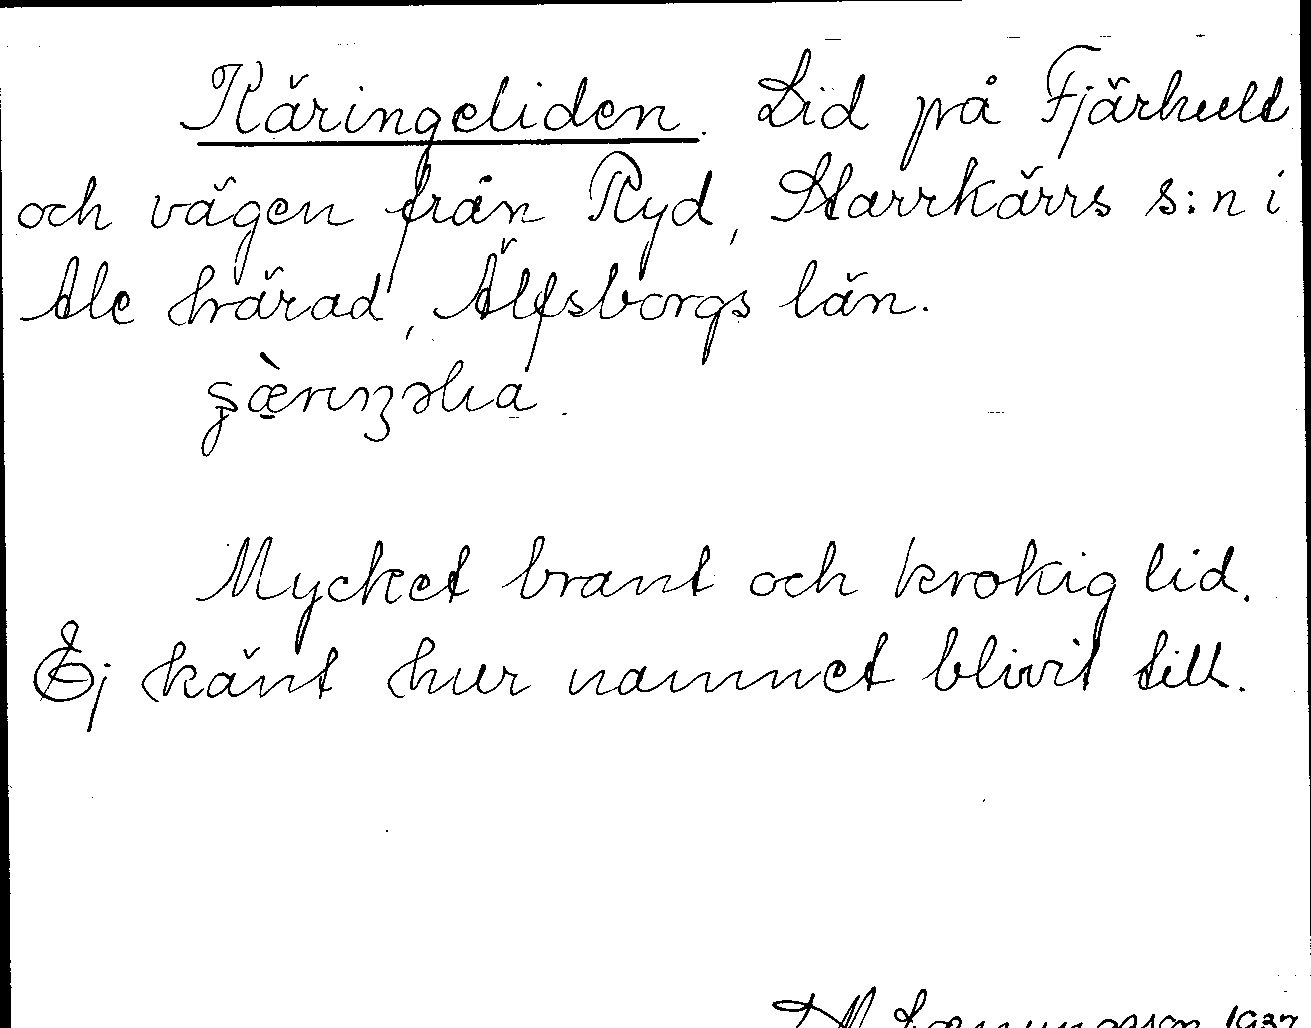 Käringeliden. Lid på Fjärhult
och vägen från Ryd, Starrkärrs s:n i
Ale härad, Älfsborgs län.
Mycket brant och krokig lid.
Ej känt hur namnet blivit till.
1937